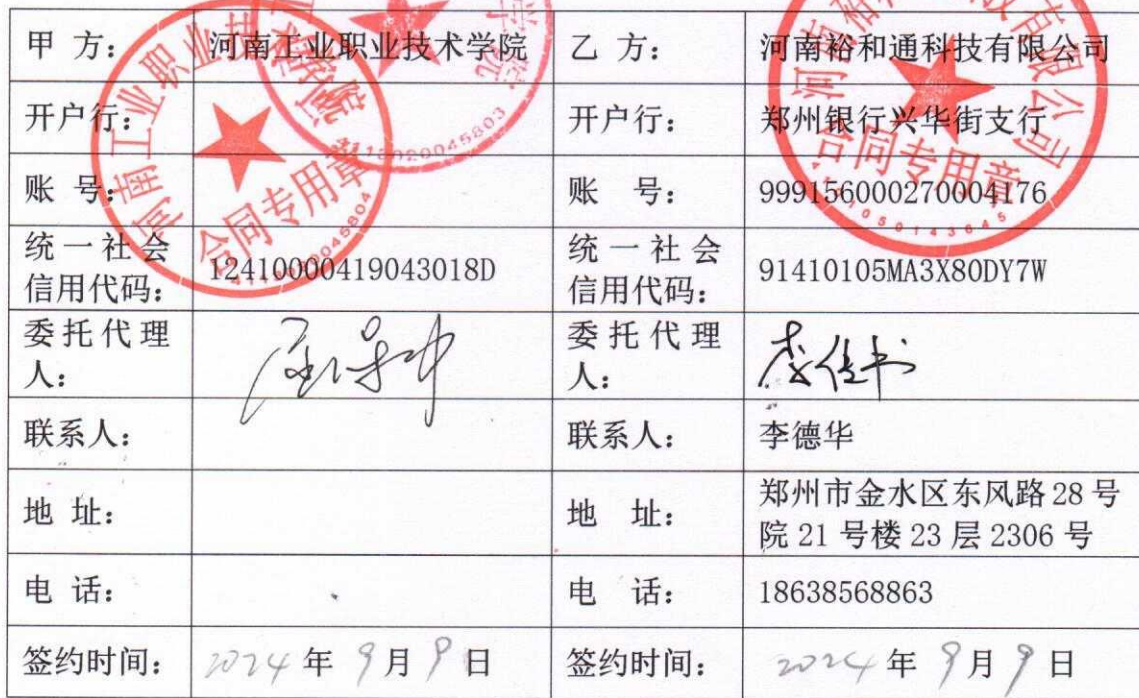 甲 方： 河南工业职业技术学院 乙 方： 河南裕和通科技有限公司
开户行： 开户行： 郑州银行兴华街支行
账 号： 账 号： 999156000270004176
统一社会 统一社会
信用代码： 12410000419043018D 信用代码： 91410105MA3X80DY7W
委托代理 委托代理
人： 人：
联系人： 联系人： 李德华
地 址： 地 址： 郑州市金水区东风路28号
院21号楼23层2306号
电 话： 电 话： 18638568863
签约时间： 2024年9月9日 签约时间： 2024年9月9日
河南工业职业技
合同专用章
有限公司
合同专用章